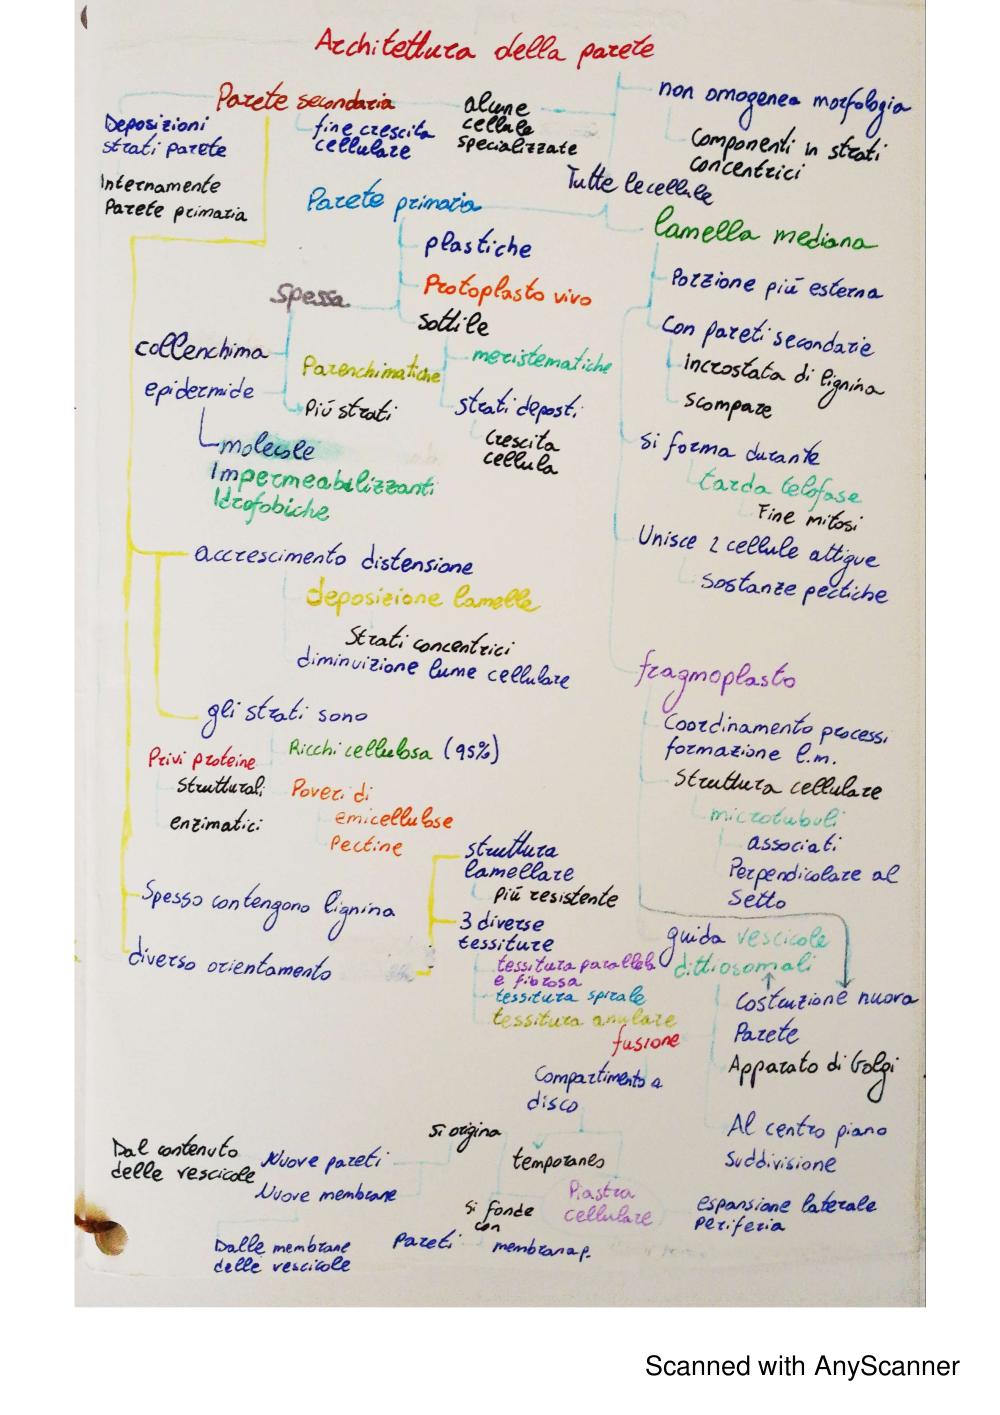 Architettura della parete
Parete secondaria
fine crescita
cellulare
alcune
cellule
specializzate
non omogenea morfologia
Componenti in strati
concentrici
Deposizioni
strati parete
Internamente
Parete primaria
Tutte le cellule
Parete primaria
lamella mediana
plastiche
Protoplasto vivo
Sottile
meristematiche
strati deposti
Crescita
cellula
Spessa
collenchima
epidermide
Parenchimatiche
Più strati
molecole
Impermeabilizzanti
Idrofobiche
Porzione più esterna
Con pareti secondarie
incrostata di lignina
scompare
Si forma durante
tarda telofase
Fine mitosi
Unisce 2 cellule attigue
Sostanze pectiche
accrescimento distensione
deposizione lamelle
Strati concentrici
diminuizione lume cellulare
gli strati sono
Privi proteine
Strutturali
enzimatici
Ricchi cellulosa (95%)
Poveri di
emicellulose
Pectine
Spesso contengono lignina
diverso orientamento
struttura
lamellare
più resistente
3 diverse
tessiture
tessitura parallela
e fibrosa
tessitura spirale
tessitura anulare
fragmoplasto
Coordinamento processi
formazione l.m.
Struttura cellulare
microtubuli
associati
Perpendicolare al
Setto
guida vescicole
dittiosomali
Costruzione nuova
Parete
Apparato di Golgi
Al centro piano
Suddivisione
espansione laterale
periferia
fusione
Compartimento a
disco
temporaneo
Piastra
cellulare
si origina
Nuove pareti
Nuove membrane
Dal contenuto
delle vescicole
Dalle membrane
delle vescicole
Si fonde
con
Pareti
membrana p.
Scanned with AnyScanner